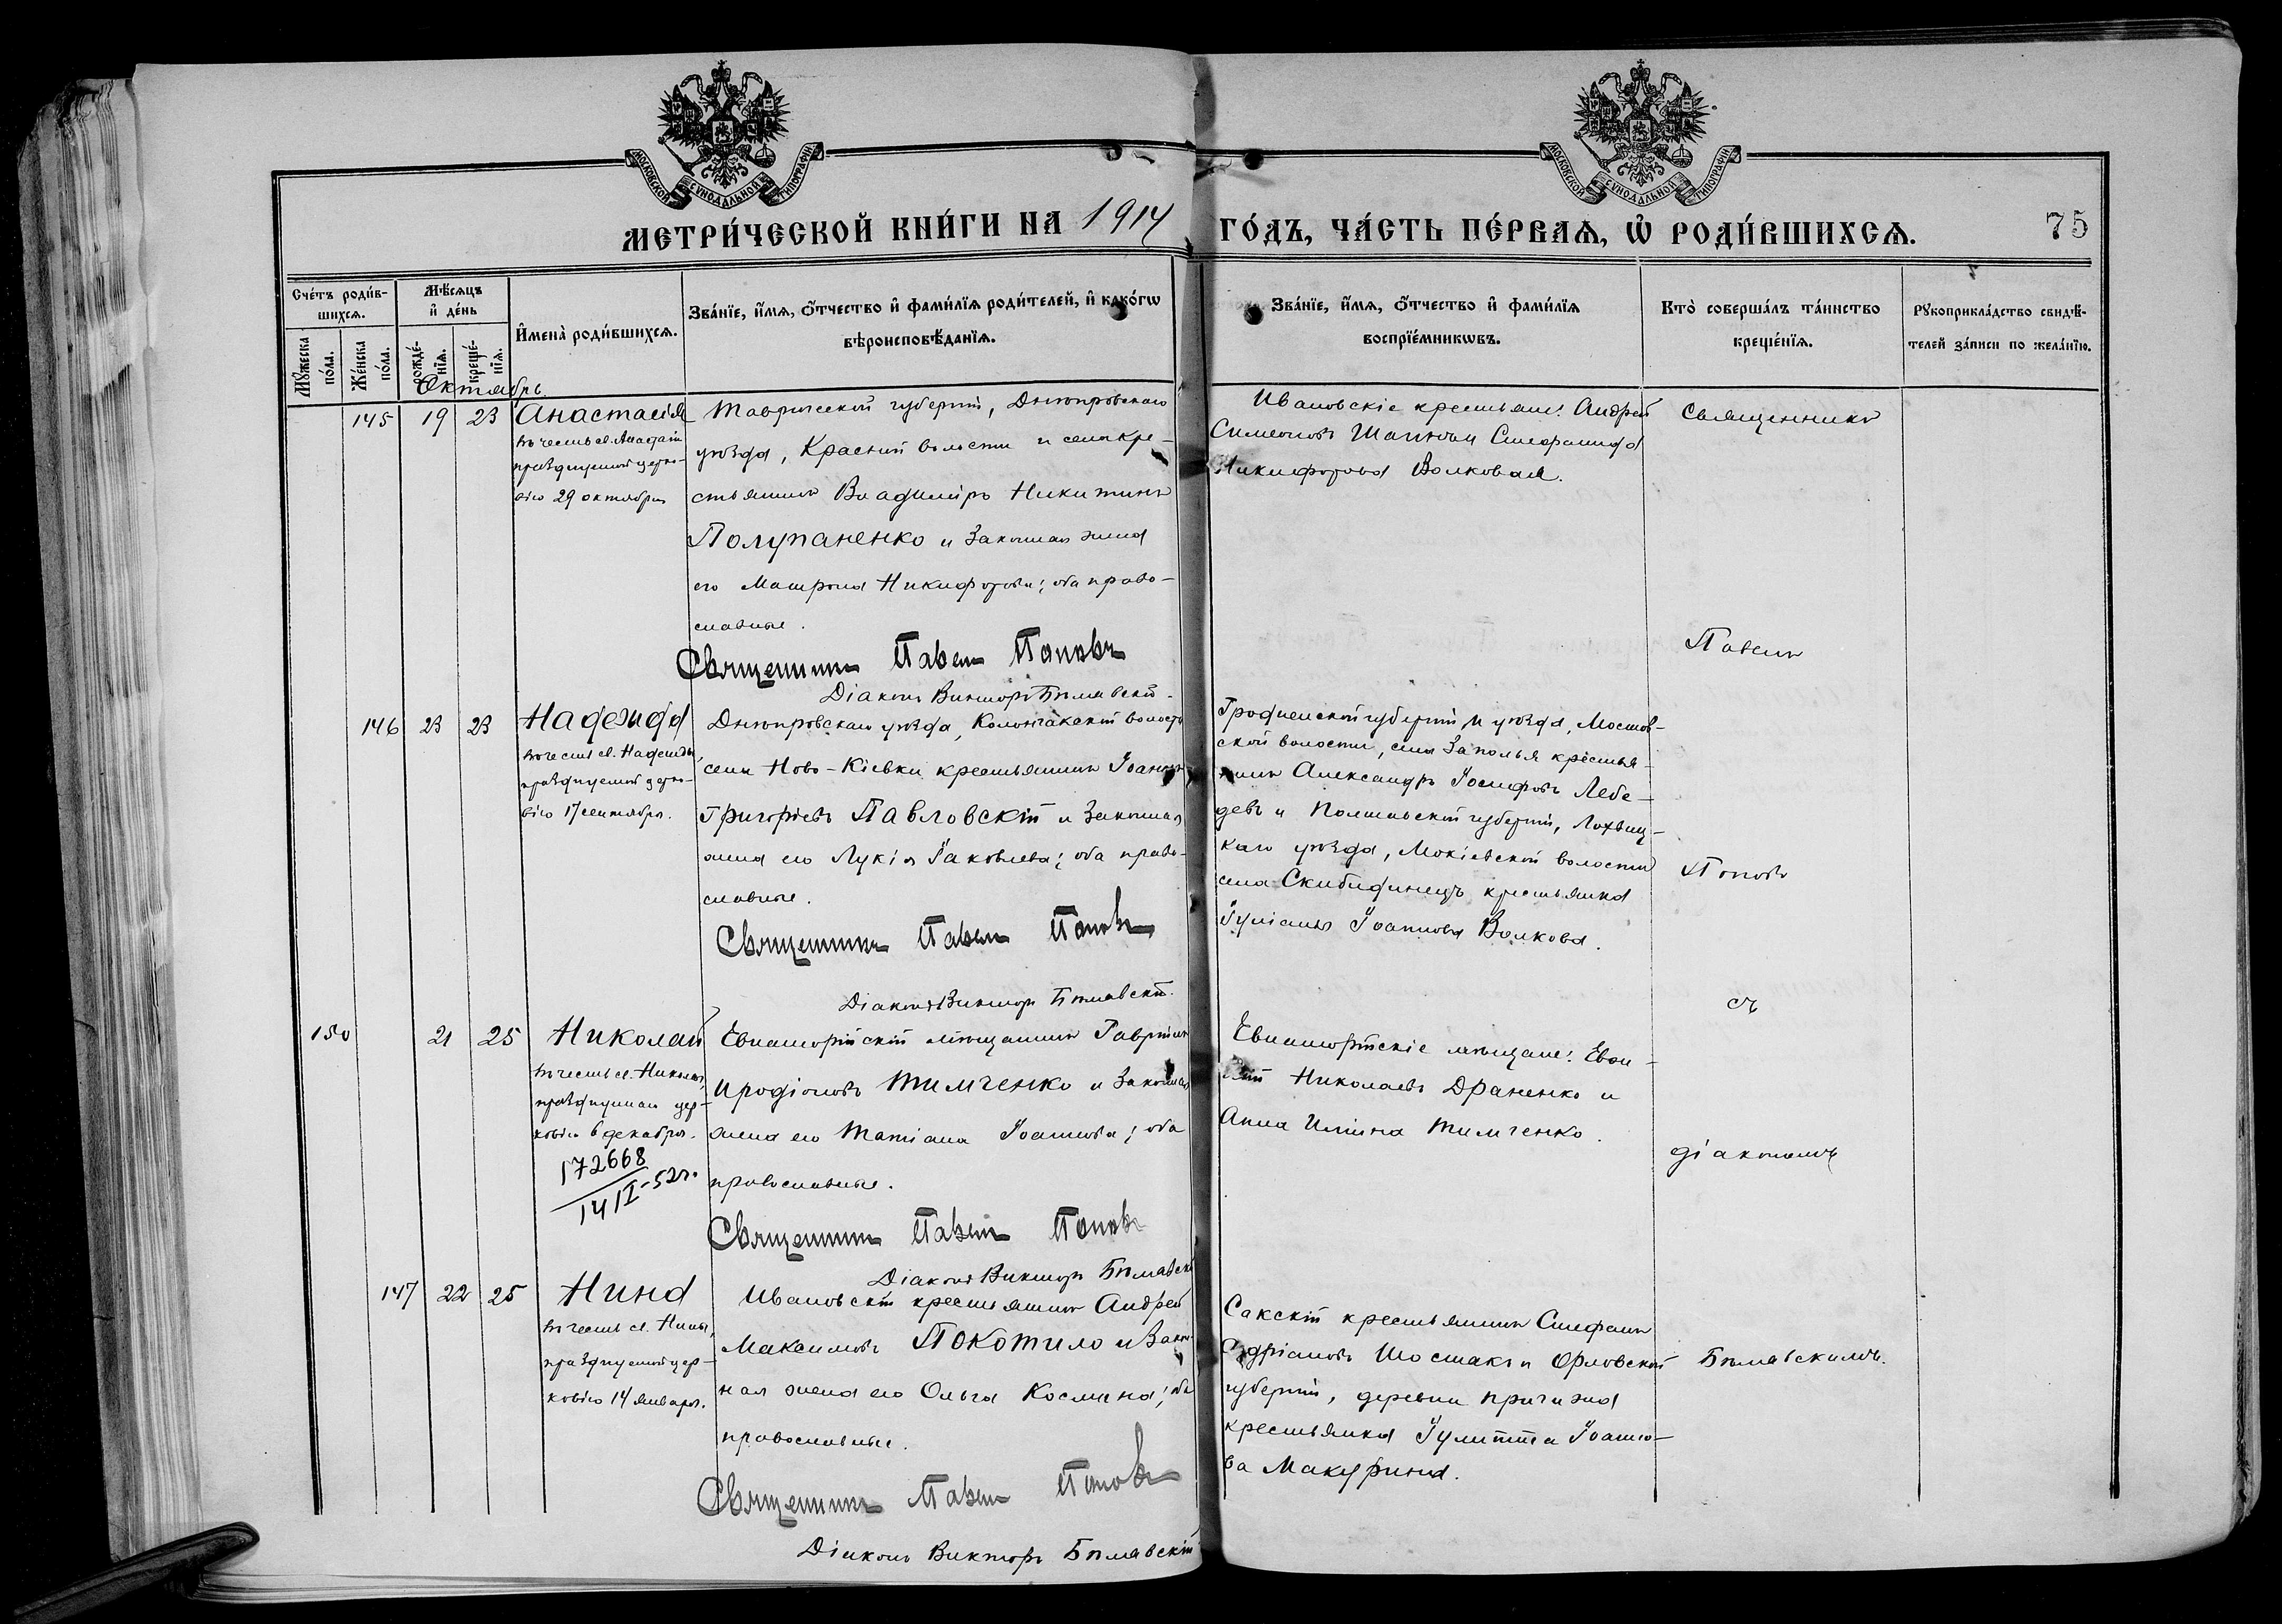 МОСКОВСКОЙ СѴНОДАЛЬНОЙ ТИПОГРАФІИ
МОСКОВСКОЙ СѴНОДАЛЬНОЙ ТИПОГРАФІИ
МЕТРИ́ЧЕСКОЙ КНИ́ГИ НА 1914 ГО́ДЪ, ЧА́СТЬ ПЕ́РВАѦ, Ѡ҆ РОДИ́ВШИХСѦ.
75
Сче́тъ роди́в-
шихсѧ.
Мꙋ́жеска по́ла.
Же́нска по́ла.
Мѣ́сѧцъ и҆ де́нь
рожде́-
нїѧ.
креще́-
нїѧ.
И҆мена̀ роди́вшихсѧ.
Зва́нїе, и҆́мѧ, ѻ҆́тчество и҆ фами́лїѧ роди́телей, и҆ како́гѡ
вѣроисповѣ́данїѧ.
Зва́нїе, и҆́мѧ, ѻ҆́тчество и҆ фами́лїѧ
воспрїе́мникѡвъ.
Кто̀ соверша́лъ та́инство
креще́нїѧ.
Рꙋкоприкла́дство свидѣ́-
телей за́писи по жела́нїю.
Октябрь
145 19 23 Анастасія
въ честь св. Анастасіи
празднуемой церко-
вію 29 октября
Таврической губерніи, Днѣпровскаго
уѣзда, Красной волости и села кре-
стьянинъ Владиміръ Никитинъ
Полупаненко и законная жена
его Матрона Никифорова; оба право-
славные.
Священникъ Павелъ Поповъ
Діаконъ Викторъ Бѣлявскій.
Ивановскіе крестьяне: Андрей
Симеоновъ и Стефанида
Никифорова Волковая.
Священникъ
Павелъ
Поповъ
съ
діакономъ
Бѣлявскимъ.
146 23 23 Надежда
въ честь св. Надежды,
празднуемой церко-
вію 17 сентября.
Днѣпровскаго уѣзда, Колончакской волости
села Ново-Кіевки крестьянинъ Іоаннъ
Григорьевъ Павловскій и законная
жена его Лукія Іаковлева; оба право-
славные.
Священникъ Павелъ Поповъ
Діаконъ Викторъ Бѣлявскій.
Гродненской губерніи и уѣзда, Мостов-
ской волости, села Заполья крестья-
нинъ Александръ Іосифовъ Лебе-
девъ и Полтавской губерніи, Лохвиц-
каго уѣзда, Мокіевской волости
села Скибидинецъ крестьянка
Іуліанія Іоаннова Волкова.
150 21 25 Николай
въ честь св. Николая,
празднуемаго цер-
ковію 6 декабря.
172668
14/I-52г.
Евпаторійскій мѣщанинъ Гавріилъ
Иродіоновъ Тимченко и законная
жена его Татіана Іоаннова; оба
православные.
Священникъ Павелъ Поповъ
Діаконъ Викторъ Бѣлявскій
Евпаторійскіе мѣщане:
Николаевъ Драненко и
Анна Иліина Тимченко.
147 22 25 Нина
въ честь св. Нины,
празднуемой цер-
ковію 14 января.
Ивановскій крестьянинъ Андрей
Максимовъ Покотило и закон-
ная жена его Ольга Космина; оба
православные.
Священникъ Павелъ Поповъ
Діаконъ Викторъ Бѣлявскій
Сакскій крестьянинъ Стефанъ
Адріановъ Шостакъ и Орловской
губерніи, деревни
крестьянка Іулитта Іоанно-
ва Макурина.